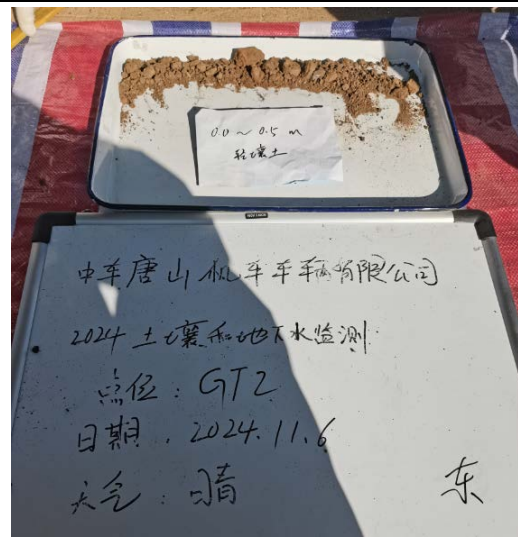 0.0~0.5m
轻壤土
中车唐山机车车辆有限公司
2024土壤和地下水监测
点位:GT2
日期.2024.11.6
天气:晴
东